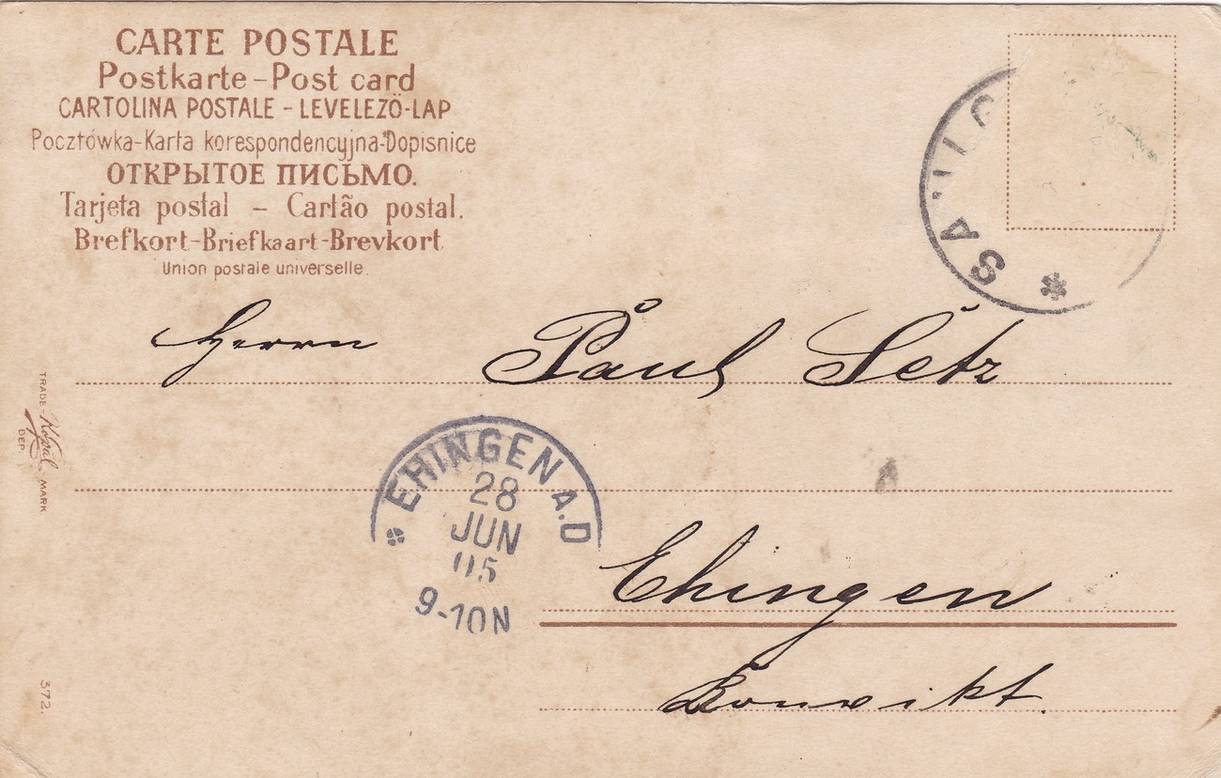 CARTE POSTALE
Postkarte-Post card
CARTOLINA POSTALE - LEVELEZŐ-LAP
Pocztówka-Karta korespondencyjna-Dopisnice
ОТКРЫТОЕ ПИСЬМО.
Tarjeta postal - Cartão postal.
Brefkort-Briefkaart-Brevkort
Union postale universelle.
Herrn Paul Setz
TRADE- MARK
DEP.
EHINGEN A.D
28
JUN
05
9-10N
Ehingen
Konvikt.
372.